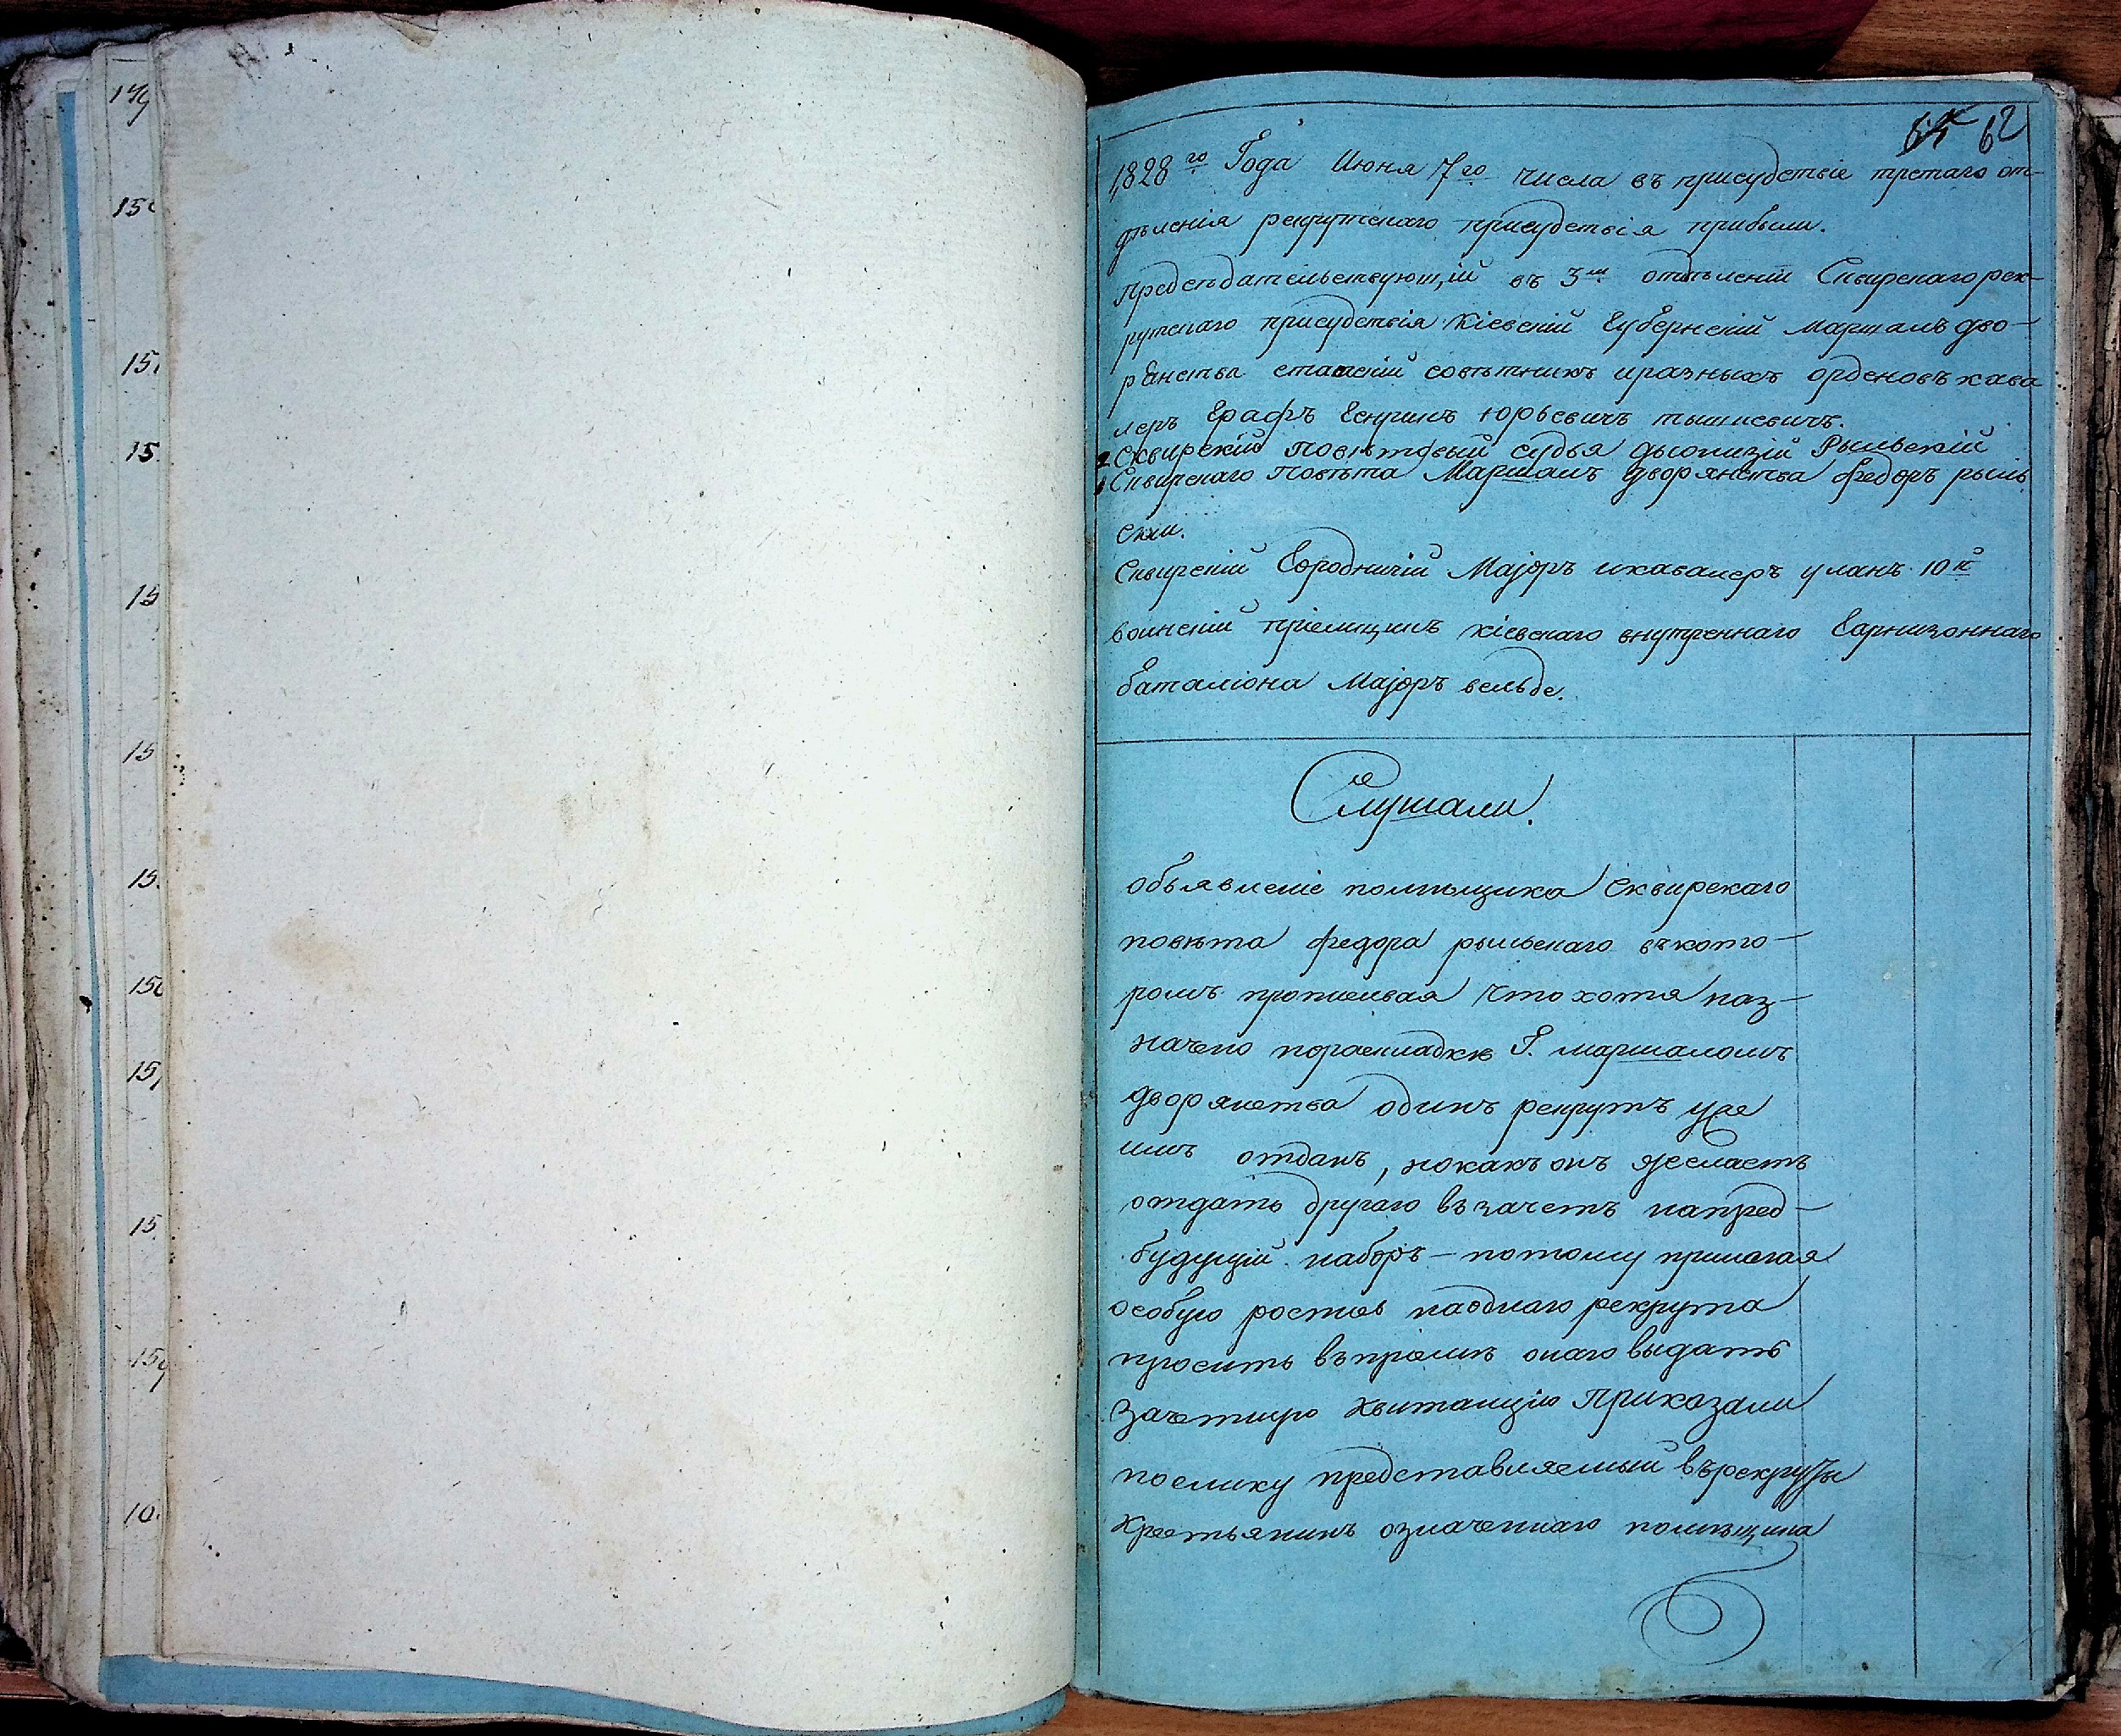 149
15
15
15
15
15
15
150
151
15
159
10
62
1828го Года Июня 7го числа въ присудствіе третаго от-
дѣленія рекрутскаго присудствія прибыли.
Предсѣдательствующій въ 3мъ отдѣленіи Сквирскаго рек-
рутскаго присудствія Кіевскій Губернскій маршалъ дво-
рянства статскій совѣтникъ и разныхъ орденовъ кава
леръ Графъ Генрихъ Юрьевичъ тышкевичъ.
2 Сквирскій повѣтовый судья дыонизій Рыльскій
1 Сквирскаго повѣта Маршалъ дворянства Федоръ рыль
скій.
Сквирскій Городничій Маjоръ и кавалеръ уланъ 10й
воинскій пріемщикъ кіевскаго внутренняго Гарнизоннаго
баталіона Маjоръ вельде.
Слушали.
объявленіе помѣщика Сквирскаго
повѣта федора рыльскаго въ кото-
ромъ прописывая что хотя наз-
начено по раскладкѣ Г. маршаломъ
дворянства одинъ рекрутъ уже
имъ отданъ, но какъ онъ желаетъ
отдать другаго въ зачетъ на пред-
будущій наборъ - потому прилагая
особую роспись на однаго рекрута
просить въ пріомъ онаго выдать
зачетную квитанцію Приказали
поелику представляемый въ рекруты
крестьянинъ означеннаго помѣщика